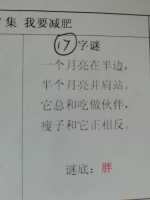 集 我要减肥
17 字谜
一个月亮在半边,
半个月亮并肩站。
它总和吃做伙伴,
瘦子和它正相反。
谜底:胖